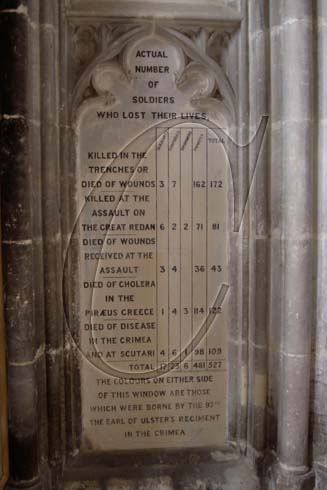 ACTUAL
NUMBER
OF
SOLDIERS
WHO LOST THEIR LIVES.
TOTAL
KILLED IN THE
TRENCHES OR
DIED OF WOUNDS 3 7 162 172
KILLED AT THE
ASSAULT ON
THE GREAT REDAN 6 2 2 71 81
DIED OF WOUNDS
RECEIVED AT THE
ASSAULT 3 4 36 43
DIED OF CHOLERA
IN THE
PIRÆUS GREECE 1 4 3 114 122
DIED OF DISEASE
IN THE CRIMEA
AND AT SCUTARI 4 6 1 98 109
TOTAL 17 23 6 481 527
THE COLOURS ON EITHER SIDE
OF THIS WINDOW ARE THOSE
WHICH WERE BORNE BY THE 97TH
THE EARL OF ULSTER'S REGIMENT
IN THE CRIMEA